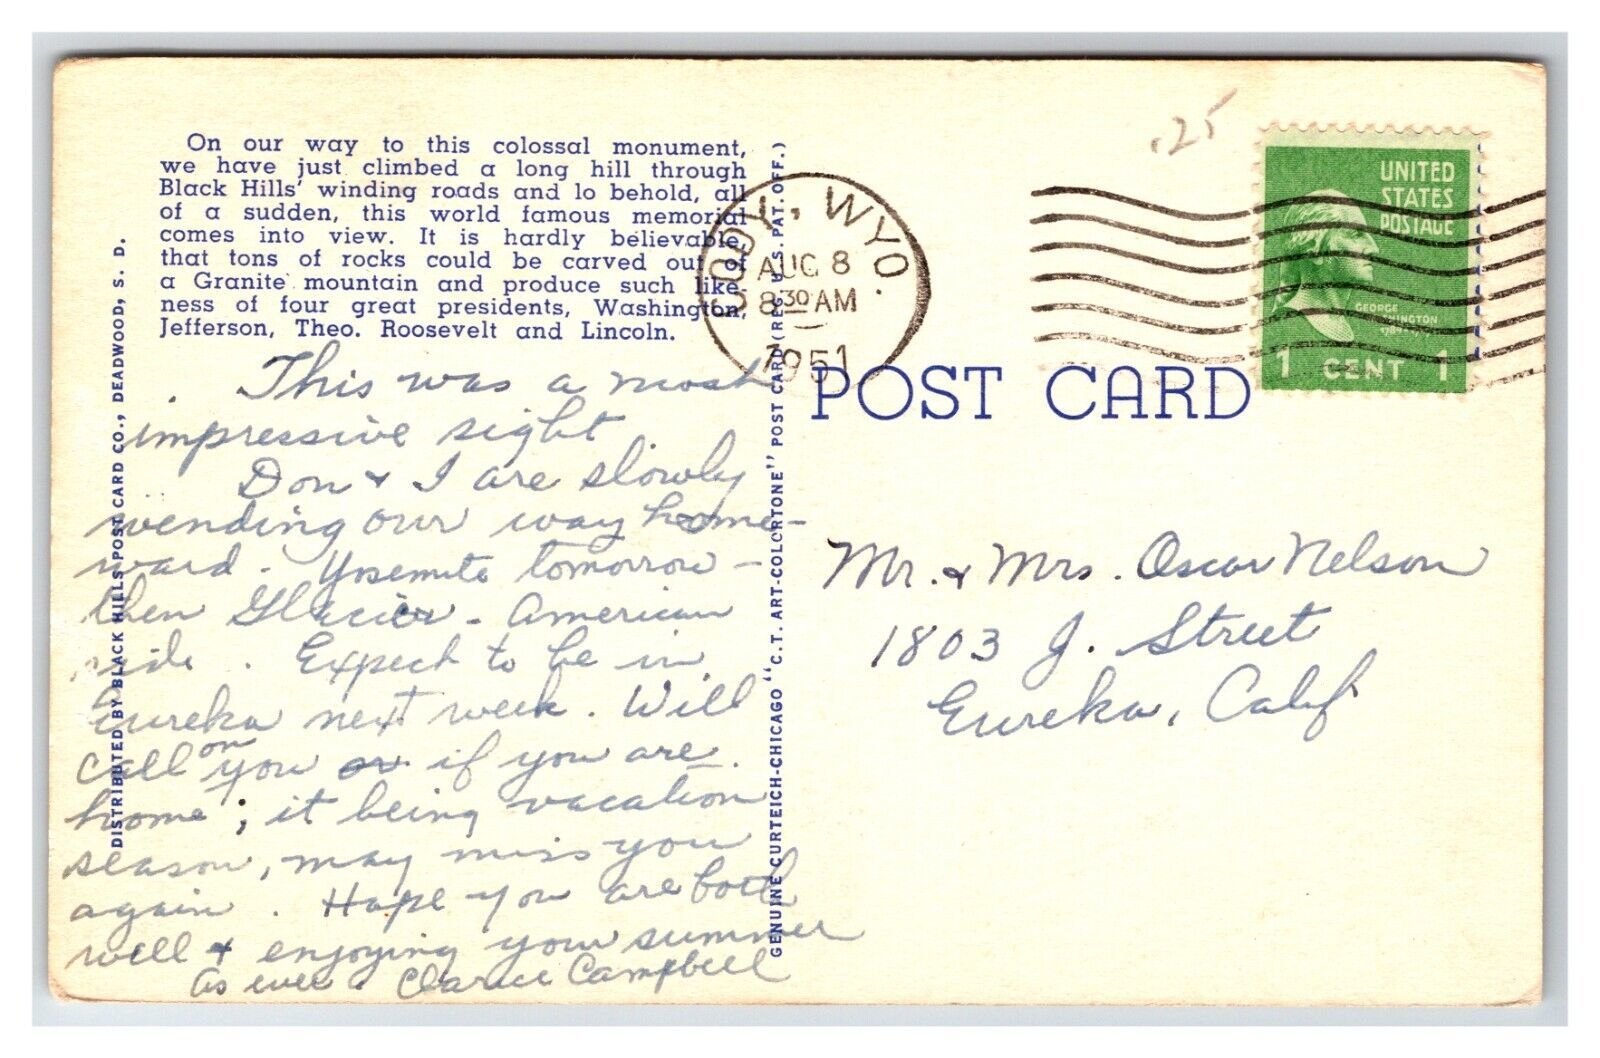 On our way to this colossal monument,
we have just climbed a long hill through
Black Hills' winding roads and lo behold, all
of a sudden, this world famous memorial
comes into view. It is hardly believable,
that tons of rocks could be carved out of
a Granite mountain and produce such like-
ness of four great presidents, Washington,
Jefferson, Theo. Roosevelt and Lincoln.
This was a most
impressive sight.
Don & I are slowly
wending our way home-
ward. Yosemite tomorrow -
then Glacier - American
side. Expect to be in
Eureka next week. Will
call on you if you are
home; it being vacation
season, may miss you
again. Hope you are both
well & enjoying your summer
As ever. Clarice Campbell
DISTRIBUTED BY BLACK HILLS POST CARD CO., DEADWOOD, S. D.
GENUINE CURTEICH-CHICAGO "C.T. ART-COLORTONE" POST CARD (REG. U.S. PAT. OFF.)
CODY, WYO.
AUG 8
8 30 AM
1951
.25
UNITED
STATES
POSTAGE
GEORGE
WASHINGTON
1 CENT 1
POST CARD
Mr. & Mrs. Oscar Nelson
1803 J. Street
Eureka, Calif